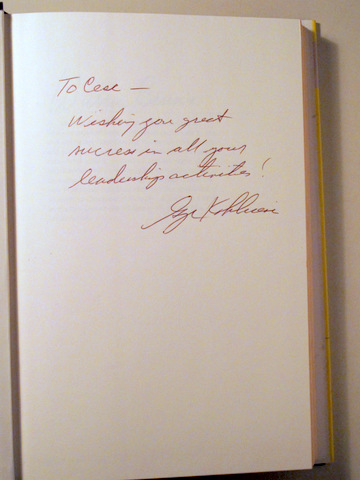 To Cese —
Wishing you great
success in all your
leadership activities!